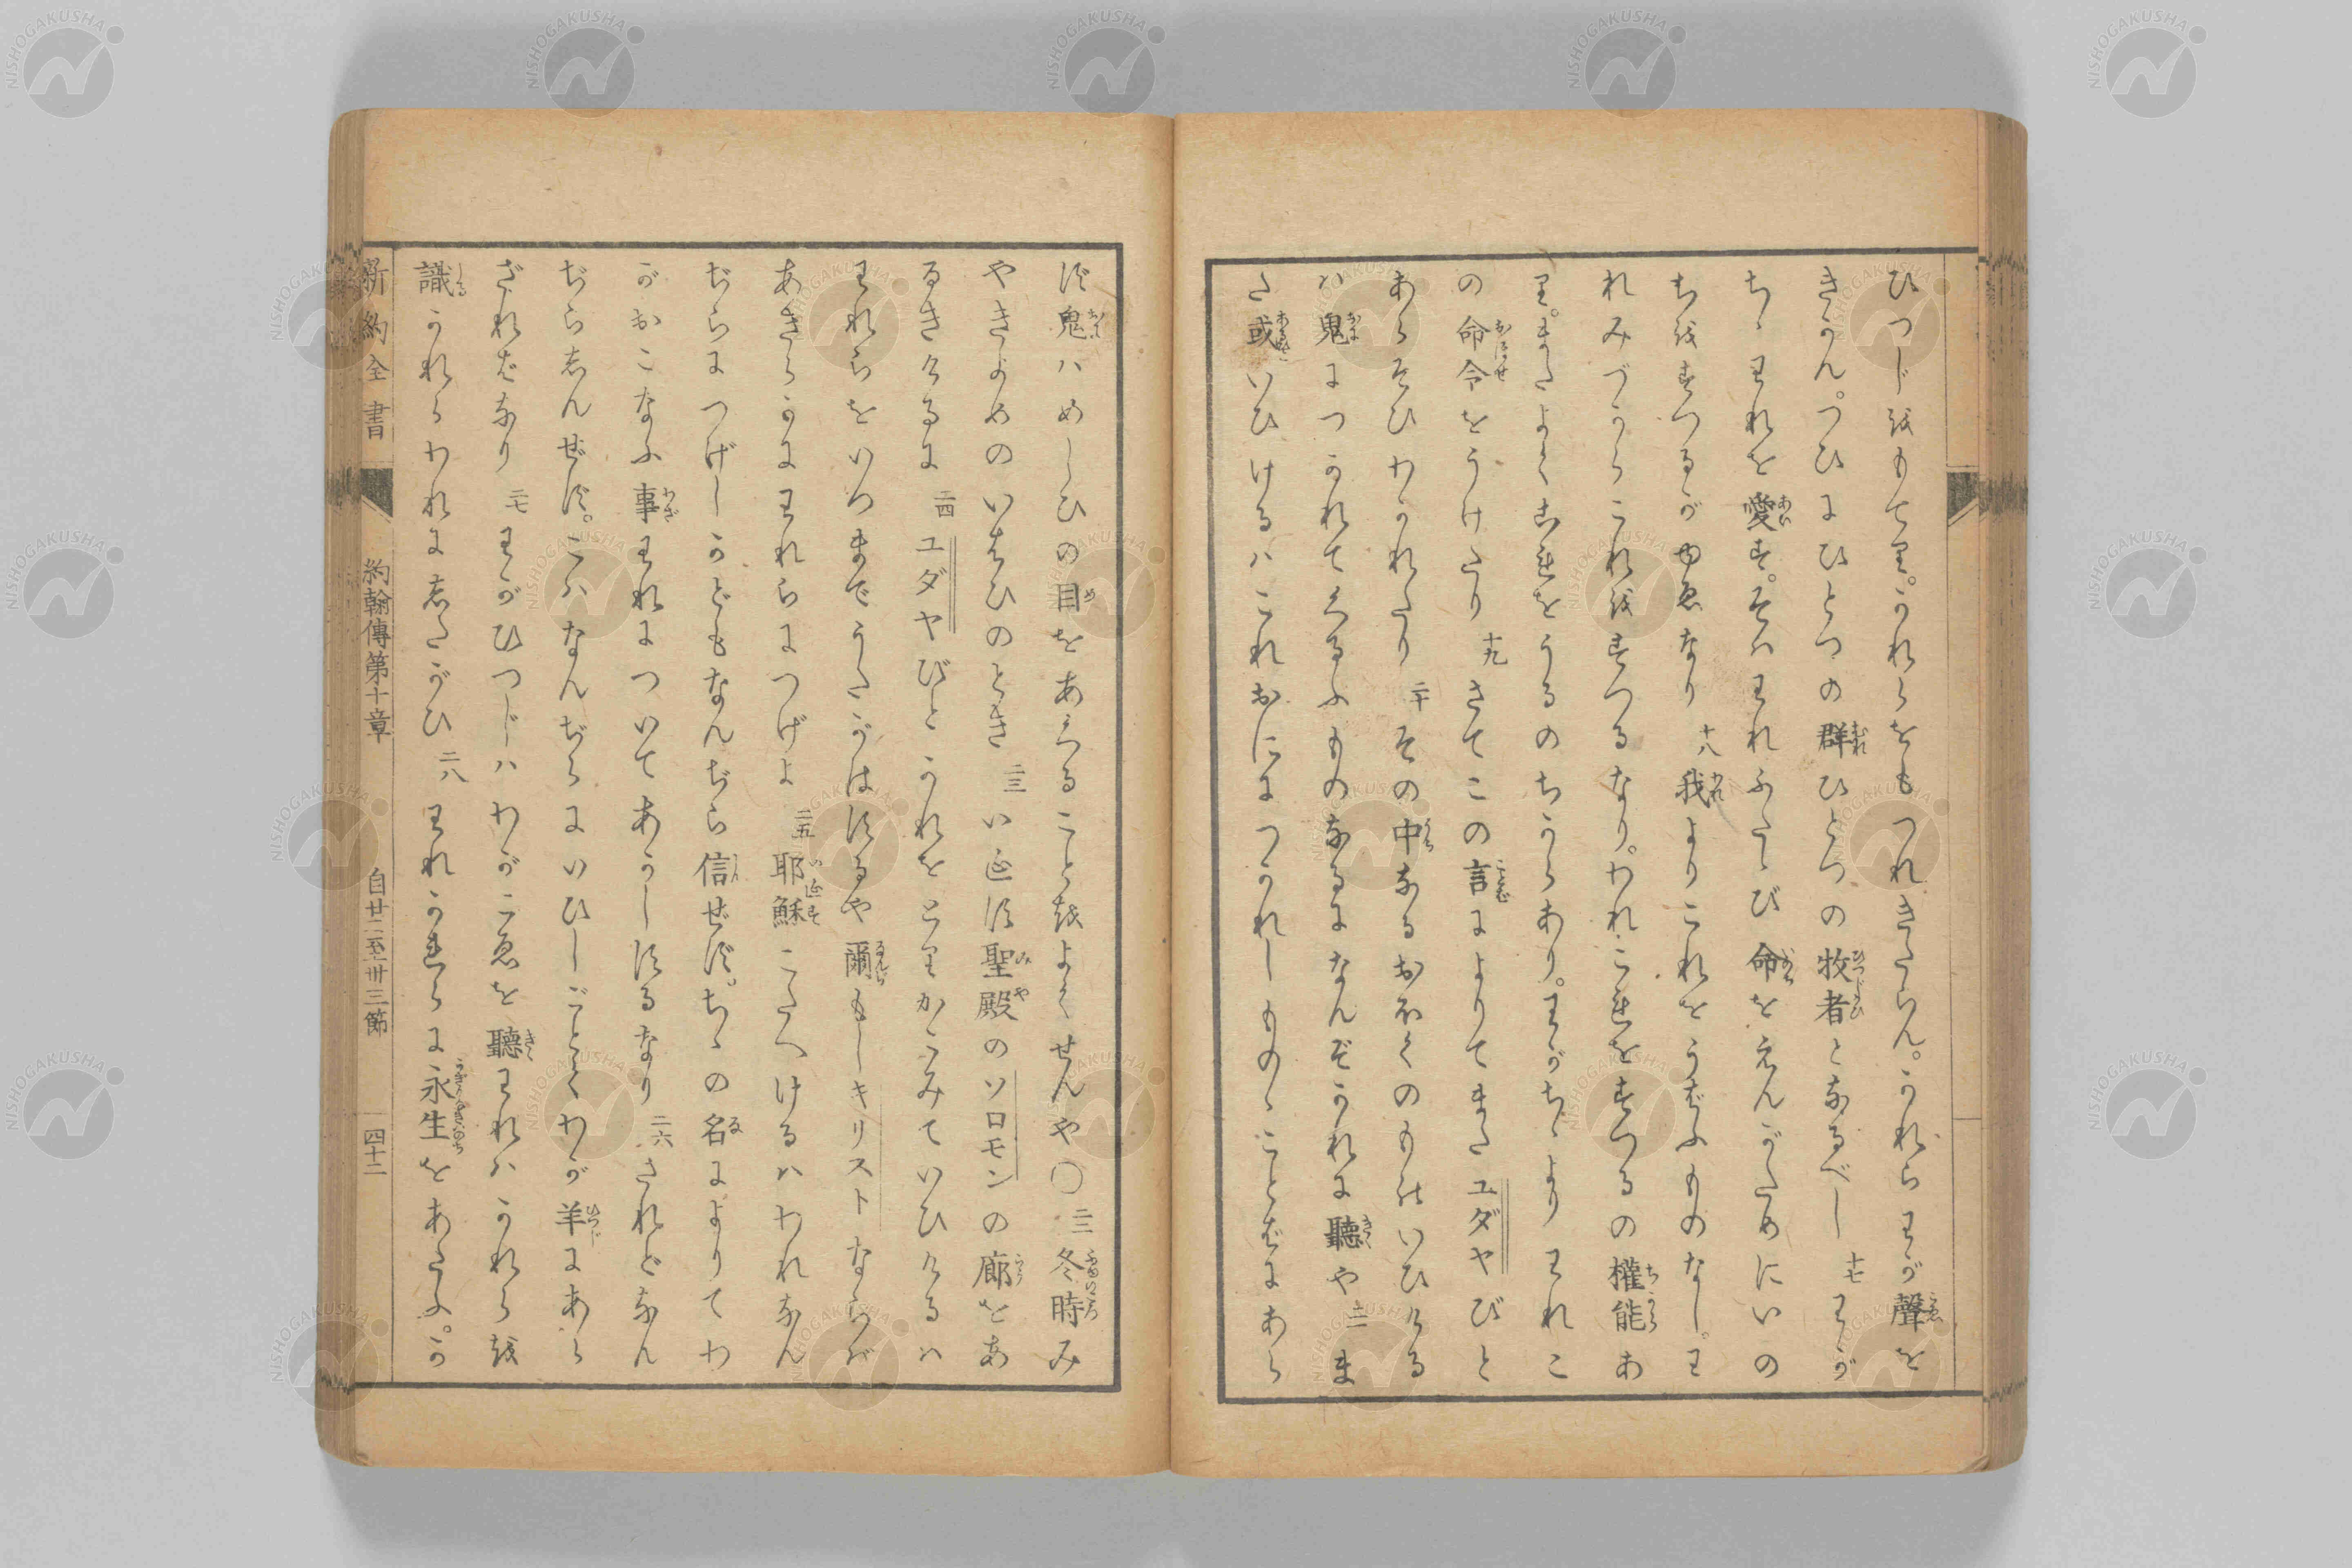 ひつじをもてり。かれらをもつれきたらん。かれらわが聲を
きかん。つひにひとつの群ひとつの牧者となるべし 十七 わが
ちゝわれを愛す。そハわれふたゝび命をえんがためにいの
ちをすつるがゆゑなり 十八 我よりこれをうばふものなし。わ
れみづからこれをすつるなり。われこれをすつるの權能あ
り。またよくこれをうるのちからあり。わがちゝよりわれこ
の命令をうけたり 十九 きてこの言によりてまたユダヤびと
あらそひわかれたり 二十 その中なるおほくのものいひける
ハ鬼につかれてくるふものなるになんぞかれに聽や 廿一 ま
た或いひけるハこれおににつかれしものゝことばにあら
ず鬼ハめしひの目をあくることをよくせんや〇 二二 冬時み
やきよめのいはひのとき 二三 いえす聖殿のソロモンの廊をあ
るきけるに 二四 ユダヤびとかれをとりかこみていひけるハ
われらをいつまでうたがはするや爾もしキリストならば
あきらかにわれらにつげよ 二五 耶穌こたへけるハわれなん
ぢらにつげしかどもなんぢら信ぜず。ちゝの名によりてわ
がおこなふ事われについてあかしするなり 二六 されどなん
ぢらしんぜず。こハなんぢらにいひしごとくわが羊にあら
ざればなり 二七 わがひつじハわがこゑを聽われハかれらを
識かれらわれにしたがひ 二八 われかれらに永生をあたふ。か
新約全書 約翰傳第十章 自廿二至卅三節 四十二
NISHOGAKUSHA